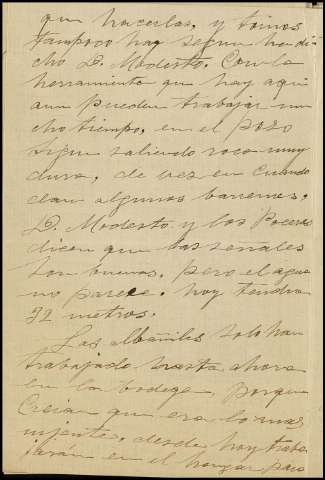 que hacerlas, y tinos
tampoco hay segun ha di
cho D. Modesto. Con la
herramienta que hay aqui
aun pueden trabajar mu
cho tiempo, en el pozo
sigue saliendo roca muy
dura, de vez en cuando
dan algunos barrenos.
D. Modesto y los Poceros
dicen que las señales
son buenas, pero el agua
no parece. hoy tendra
32 metros.
Los albañiles solo han
trabajado hasta ahora
en la bodega, porque
creian que era lo mas
urjente, desde hoy traba
jarán en el hangar para